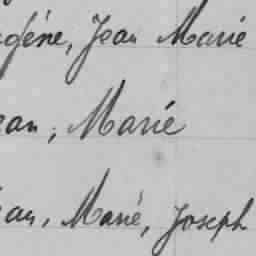 gène, Jean Marie
ean, Marie
ean, Marie, Joseph